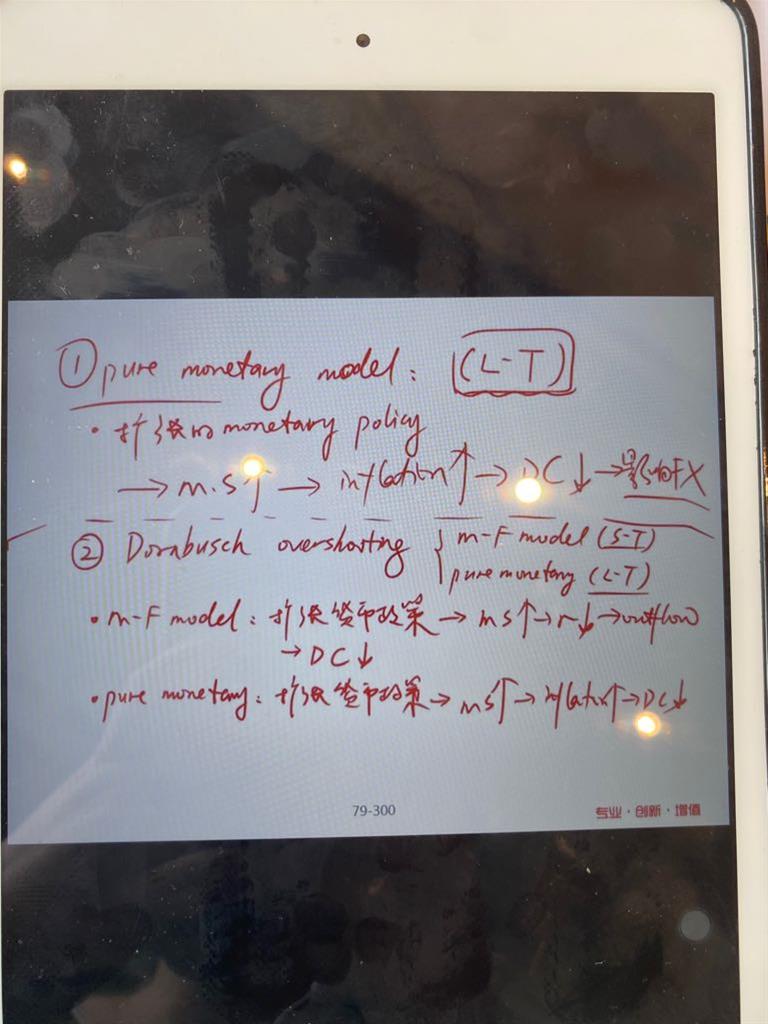 ① pure monetary model: (L-T)
· 扩张的monetary policy
→ m.s↑ → inflation↑ → DC↓ → 影响FX
② Dornbusch overshooting { m-F model (S-T)
pure monetary (L-T)
· m-F model: 扩张货币政策 → ms↑ → r↓ → outflow
→ DC↓
· pure monetary: 扩张货币政策 → ms↑ → inflation↑ → DC↓
79-300
专业·创新·增值